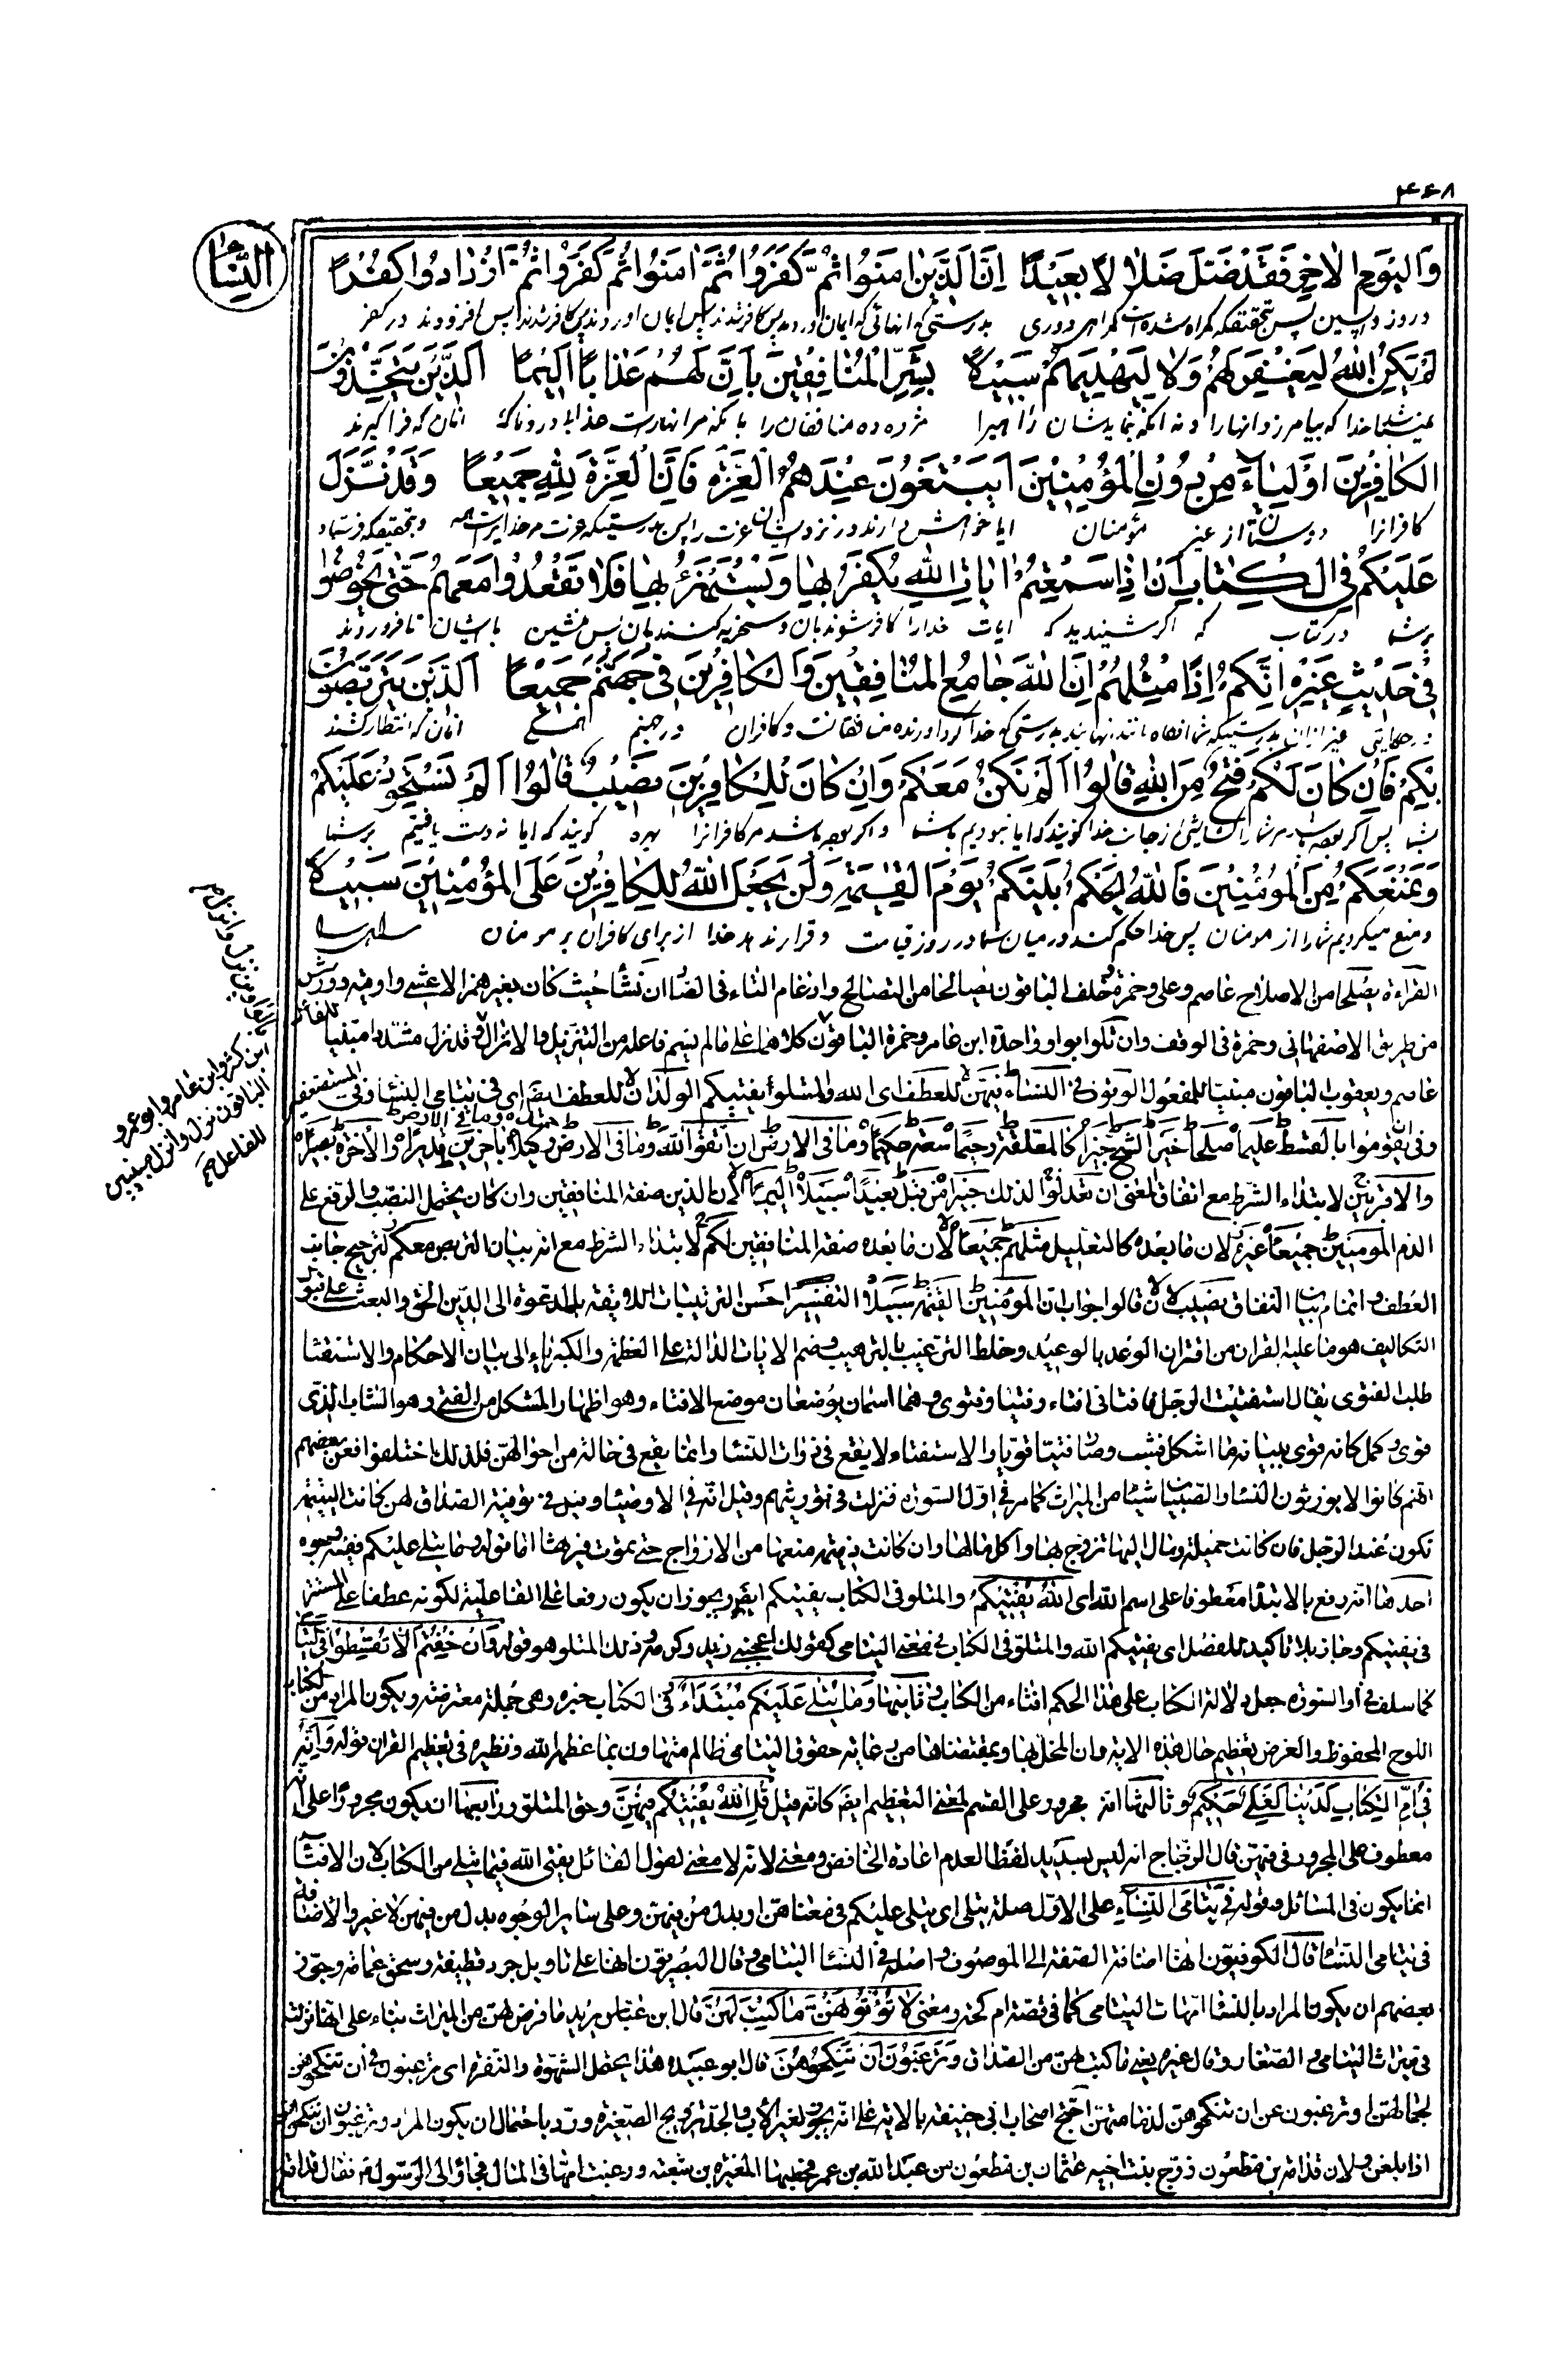 ۴۴۸
النساء
وَاليَومِ الاخِرِ فَقَد ضَلَّ ضَلالًا بَعِيدًا اِنَّ الَّذينَ امَنُوا ثُمَّ كَفَرُوا ثُمَّ امَنُوا ثُمَّ كَفَرُوا ثُمَّ ازْدادُوا كُفْرًا
و روز واپسین پس بتحقیقکه گمراه شده است گمراهی دوری بدرستی که انهائی که ایمان اوردند پس کافر شدند پس ایمان اوردند پس کافر شدند پس افزودند در کفر
لَم يَكُنِ اللهُ لِيَغفِرَ لَهُم وَلا لِيَهدِيَهُم سَبيلًا بَشِّرِ المُنافِقينَ بِاَنَّ لَهُم عَذابًا اَليمًا اَلَّذينَ يَتَّخِذُونَ
خدا که بیامرزد انها را و نه انکه بنمایدشان راهیرا مژده ده منافقان را بانکه مر انهاراست عذابی دردناک انان که فرا گیرند
الكافِرينَ اَولِياءَ مِن دُونِ المُؤمِنينَ اَيَبتَغُونَ عِندَهُمُ العِزَّةَ فَاِنَّ العِزَّةَ لِلّهِ جَميعًا وَقَد نَزَّلَ
کافرانرا دوستان از غیر مؤمنان ایا خواهش دارند در نزد ایشان عزت را پس بدرستیکه عزت مر خدایراست همه و بتحقیقکه فرستاد
عَلَيكُم فِى الكِتابِ اَن اِذا سَمِعتُم اياتِ اللهِ يُكفَرُ بِها وَيُستَهزَءُ بِها فَلا تَقعُدُوا مَعَهُم حَتّى يَخُوضُوا
بر شما در کتاب که اگر شنیدید که ایات خدا را کافر شوند بان و سخریه کنند بان پس منشین با ایشان تا فرو روند
فى حَديثٍ غَيرِه اِنَّكُم اِذًا مِثلُهُم اِنَّ اللهَ جامِعُ المُنافِقينَ وَالكافِرينَ فى جَهَنَّمَ جَميعًا اَلَّذينَ يَتَرَبَّصُونَ
در حکایتی غیر ان بدرستیکه شما انگاه مانند انهائید بدرستی که خدا گرداورنده منافقانست و کافران در جهنم انان که انتظار کشند
بِكُم فَاِن كانَ لَكُم فَتحٌ مِنَ اللهِ قالُوا اَلَم نَكُن مَعَكُم وَاِن كانَ لِلكافِرينَ نَصيبٌ قالُوا اَلَم نَستَحوِذ عَلَيكُم
بشما پس اگر بوده باشد مر شما را گشایشی از جانب خدا گویند که ایا نبودیم با شما و اگر بوده باشد مر کافرانرا بهره گویند که ایا نه دست یافتیم بر شما
وَنَمنَعكُم مِنَ المُؤمِنينَ فَاللهُ يَحكُمُ بَينَكُم يَومَ القِيمَةِ وَلَن يَجعَلَ اللهُ لِلكافِرينَ عَلَى المُؤمِنينَ سَبيلًا
و منع میکردیم شما را از مومنان پس خدا حکم کند در میان شما در روز قیامت و قرار ندهد خدا از برای کافران بر مومنان
القراءة يصلحا من الاصلاح عاصم وعلى وحمزة وخلف الباقون يصالحا من التصالح وادغام التاء فى الصاد ان نشأ حيث كان بغير همز الاعشى واوقيه وورش
من طريق الاصفهانى وحمزة فى الوقف وان تلوا بواو واحدة ابن عامر وحمزة الباقون كلاهما على ما لم يسم فاعله من التنزيل والانزال وقد نزل مشددا مبنيا للفاعل
عاصم ويعقوب الباقون مبنيا للمفعول الوقوف فى النساء فيهن للعطف اى الله والمتلو يفتيكم الولدان للعطف ايضا اى فى يتامى النساء وفى المستضعفين
وفى ان تقوموا بالقسط عليما صلحا خير الشح خبيرا كالمعلقة رحيما سعته حكيما وما فى الارض ان اتقوا الله وما فى الارض وكيلا باخرين قديرا والاخرة بصيرا
والاقربين لابتداء الشرط مع اتفاق المعنى ان تعدلوا لذلك خبيرا من قبل بعيدا سبيلا اليما لان الذين صفة المنافقين وان كان يحتمل النصب والرفع على
الذم المؤمنين جميعا غيره لان ما بعده كالتعليل مثلهم جميعا لان ما بعده صفة المنافقين لكم لابتداء الشرط مع انه بيان التربص معكم لترجيح جانب
العطف واتمام بيان النفاق نصيب لان قالوا جواب ان المؤمنين القيمة سبيلا التفسير احسن الترتيبات اللايقة بالدعوة الى الدين الحق والبعث على قبول
التكاليف هو ما عليه القران من اقتران الوعد بالوعيد وخلط الترغيب بالترهيب وضم الايات الدالة على العظمة والكبرياء الى بيان الاحكام والاستفتاء
طلب الفتوى يقال استفتيت الرجل فافتانى افتاء وفتيا وفتوى وهما اسمان يوضعان موضع الافتاء وهو اظهار المشكل من الفتى وهو الشاب الذى
قوى وكمل كانه قوى ببيانه ما اشكل فشب وصار فتيا قويا والاستفتاء لا يقع فى ذوات النساء وانما يقع فى حالة من احوالهن فلذلك اختلفوا فعن بعضهم
انهم كانوا لا يورثون النساء والصبيان شيئا من الميراث كما مر فى اول السورة فنزلت فى توريثهم وقيل انه فى الاوصياء وقيل فى توفية الصداق لهن كانت اليتيمة
تكون عند الرجل فان كانت جميلة ومال اليها تزوج بها واكل مالها وان كانت دميمة منعها من الازواج حتى تموت فيرثها اما قوله وما يتلى عليكم ففيه وجوه
احدها انه رفع بالابتداء معطوفا على اسم الله اى الله يفتيكم والمتلو فى الكتاب يفتيكم ايضا ويجوز ان يكون رفعا على الفاعلية لكونه عطفا على المستتر
فى يفتيكم وجاز بلا تاكيد للفصل اى يفتيكم الله والمتلو فى الكتاب فى معنى اليتامى كقولك اعجبنى زيد وكرمه وذلك المتلو هو قوله وان خفتم الا تقسطوا فى اليتامى
كما سلف فى اول السورة جعل دلالة الكتاب على هذا الحكم افتاء من الكتاب وثانيها وما يتلى عليكم مبتداء وفى الكتاب خبره وهى جملة معترضة ويكون المراد من الكتاب
اللوح المحفوظ والغرض تعظيم حال هذه الاية وان المخل بها وبمقتضاها من رعاية حقوق اليتامى ظالم متهاون بما عظمه الله ونظيره فى تعظيم القران قوله وانه
فى ام الكتاب لدينا لعلى حكيم وثالثها انه مجرور على القسم لمعنى التعظيم ايضا كانه قيل قل الله يفتيكم فيهن وحق المتلو ورابعها ان يكون مجرورا على انه
معطوف على المجرور فى فيهن قال الزجاج انه ليس بسديد لفظا لعدم اعادة الخافض ومعنى لانه لا معنى لقول القائل يفتى الله فيما يتلى من الكتاب لان الافتاء
انما يكون فى المسائل وقوله فى يتامى النساء على الاول صلة يتلى اى يتلى عليكم فى معناهن او بدل من فيهن وعلى سائر الوجوه بدل من فيهن لا غير والاضافة
فى يتامى النساء قال الكوفيون انها اضافة الصفة الى الموصوف واصله فى النساء اليتامى وقال البصريون انها على تاويل جرد قطيفة وسحق عمامة وجوز
بعضهم ان يكون المراد بالنساء امهات اليتامى كما فى قصة ام كحة ومعنى لا تؤتونهن ما كتب لهن قال ابن عباس يريد ما فرض لهن من الميراث بناء على انها نزلت
فى ميراث اليتامى والصغار وقال غيره يعنى ما كتب لهن من الصداق وترغبون ان تنكحوهن قال ابو عبيده هذا يحتمل الشهوة والنفرة اى ترغبون فى ان تنكحوهن
لجمالهن او ترغبون عن ان تنكحوهن لدمامتهن احتج اصحاب ابى حنيفة بالاية على انه يجوز لغير الاب والجد تزويج الصغيرة ورد باحتمال ان يكون المراد وترغبون ان تنكحوهن
اذا بلغن ولان قدامة بن مظعون زوج بنت اخيه عثمان بن مظعون من عبد الله بن عمر فخطبها المغيرة بن شعبة ورغبت امها فى المال فجاؤا الى الرسول ص فقال قدامة
ابن كثير وابن عامر وابو عمرو
الباقون نزل وانزل مبنيين
للفاعل